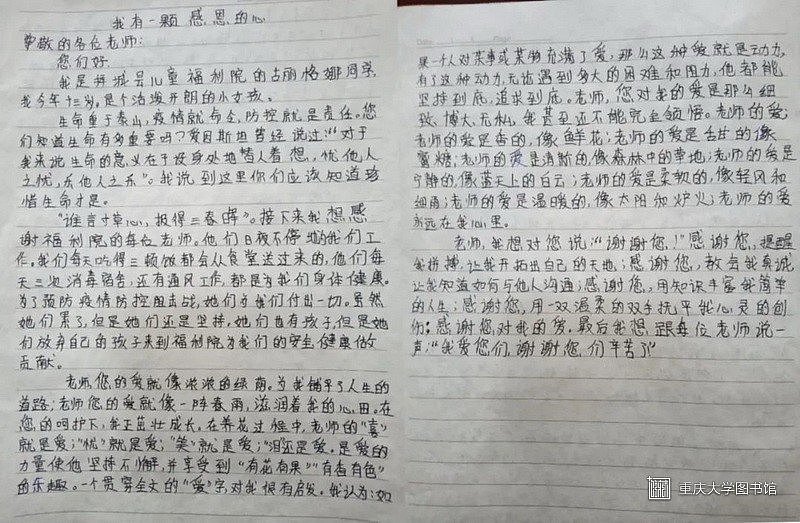 我有一颗感恩的心
尊敬的各位老师:
您们好
我是拜城县儿童福利院的古丽格娜同学,
我今年十三岁,是个活泼开朗的小女孩。
生命重于泰山,疫情就命令,防控就是责任。您
们知道生命有多重要吗?爱因斯坦曾经说过:“对于
我来说生命的意义在于设身处地替人着想,忧他人
之忧,乐他人之乐”。我说到这里你们应该知道珍
惜生命才是。
“谁言寸草心,报得三春晖”。接下来我想感
谢福利院的每位老师。他们日夜不停地为我们工
作。我们每天吃得三顿饭都会从食堂送过来的,他们每
天三次消毒宿舍,还有通风工作,都是为我们身体健康。
为了预防疫情防控阻击战,她们为我们付出一切。虽然
她们累了,但是她们还是坚持,她们也有孩子,但是她
们放弃自己的孩子来到福利院为我们的安全健康做
贡献。
老师,您的爱就像浓浓的绿荫。为我铺平了人生的
道路;老师您的爱就像一阵春雨,滋润着我的心田。在
您的呵护下,我正茁壮成长。在养花过程中,老师的“喜”
就是爱;“忧”就是爱;“笑”就是爱;“泪”还是爱。是爱的
力量使他坚持不懈,并享受到“有花有果”“有香有色”
的乐趣。一个贯穿全文的“爱”字,对我很有启发。我认为:如
果一个人对某事或某物充满了爱,那么这种爱就是动力,
有了这种动力,无论遇到多大的困难和阻力,他都能
坚持到底,追求到底。老师,您对我的爱是那么细
致、博大、无私,我甚至还不能完全领悟。老师的爱;
老师的爱是香的,像鲜花;老师的爱是甜的像
蜜糖;老师的爱是清新的,像森林中的草地;老师的爱是
宁静的,像蓝天上的白云;老师的爱是柔软的,像轻风和
细雨;老师的爱是温暖的,像太阳和炉火;老师的爱
永远在我心里。
老师,我想对您说:“谢谢您!”感谢您,提醒
我拼搏,让我开拓出自己的天地;感谢您,教会我真诚
让我知道如何与他人沟通;感谢您,用知识丰富我简单
的人生;感谢您,用一双温柔的双手抚平我心灵的创
伤;感谢您,对我的爱。最后我想跟每位老师说一
声:“我爱您们,谢谢您们辛苦了”
重庆大学图书馆